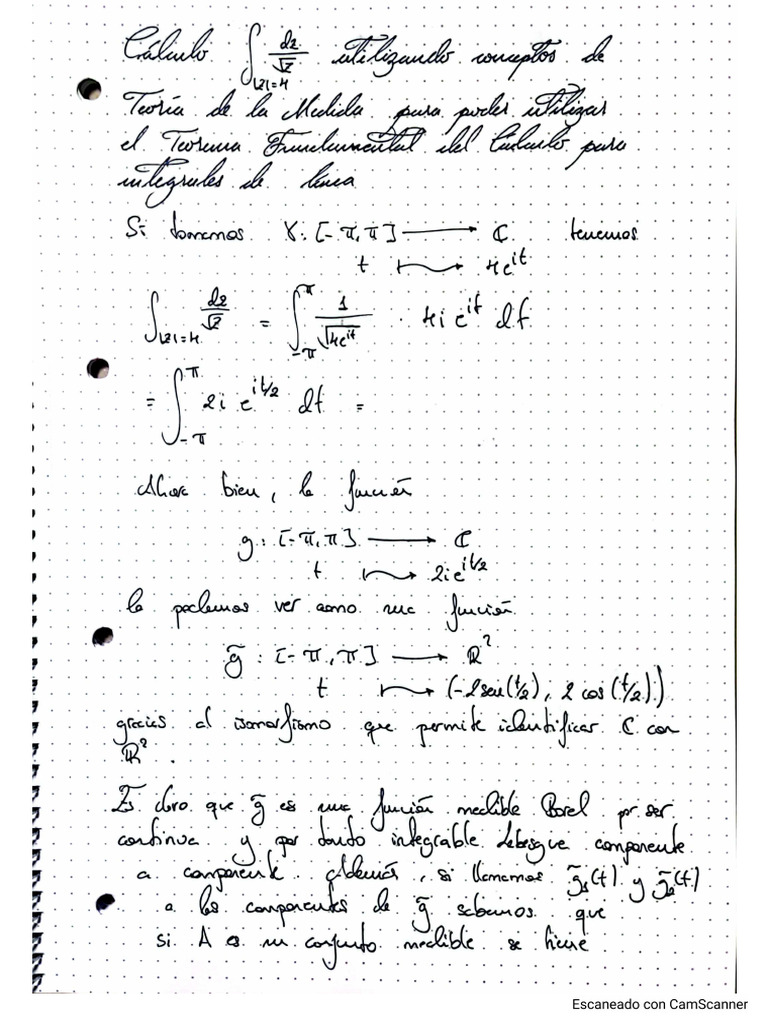 Cálculo ∫_{|z|=4} dz/√z utilizando conceptos de
Teoría de la Medida para poder utilizar
el Teorema Fundamental del Cálculo para
integrales de línea
Si tomamos γ: [-π, π] ⟶ ℂ tenemos
t ⟼ 4e^{it}
∫_{|z|=4} dz/√z = ∫_{-π}^{π} 1/√(4e^{it}) · 4i e^{it} dt
= ∫_{-π}^{π} 2i e^{it/2} dt =
Ahora bien, la función
g: [-π, π] ⟶ ℂ
t ⟼ 2i e^{it/2}
la podemos ver como una función
g̃: [-π, π] ⟶ ℝ²
t ⟼ (-2sen(t/2), 2 cos(t/2))
gracias al isomorfismo que permite identificar ℂ con
ℝ².
Es claro que g̃ es una función medible Borel por ser
continua y por tanto integrable Lebesgue componente
a componente. Además, si llamamos g̃₁(t) y g̃₂(t)
a las componentes de g̃ sabemos que
si A es un conjunto medible se tiene
Escaneado con CamScanner